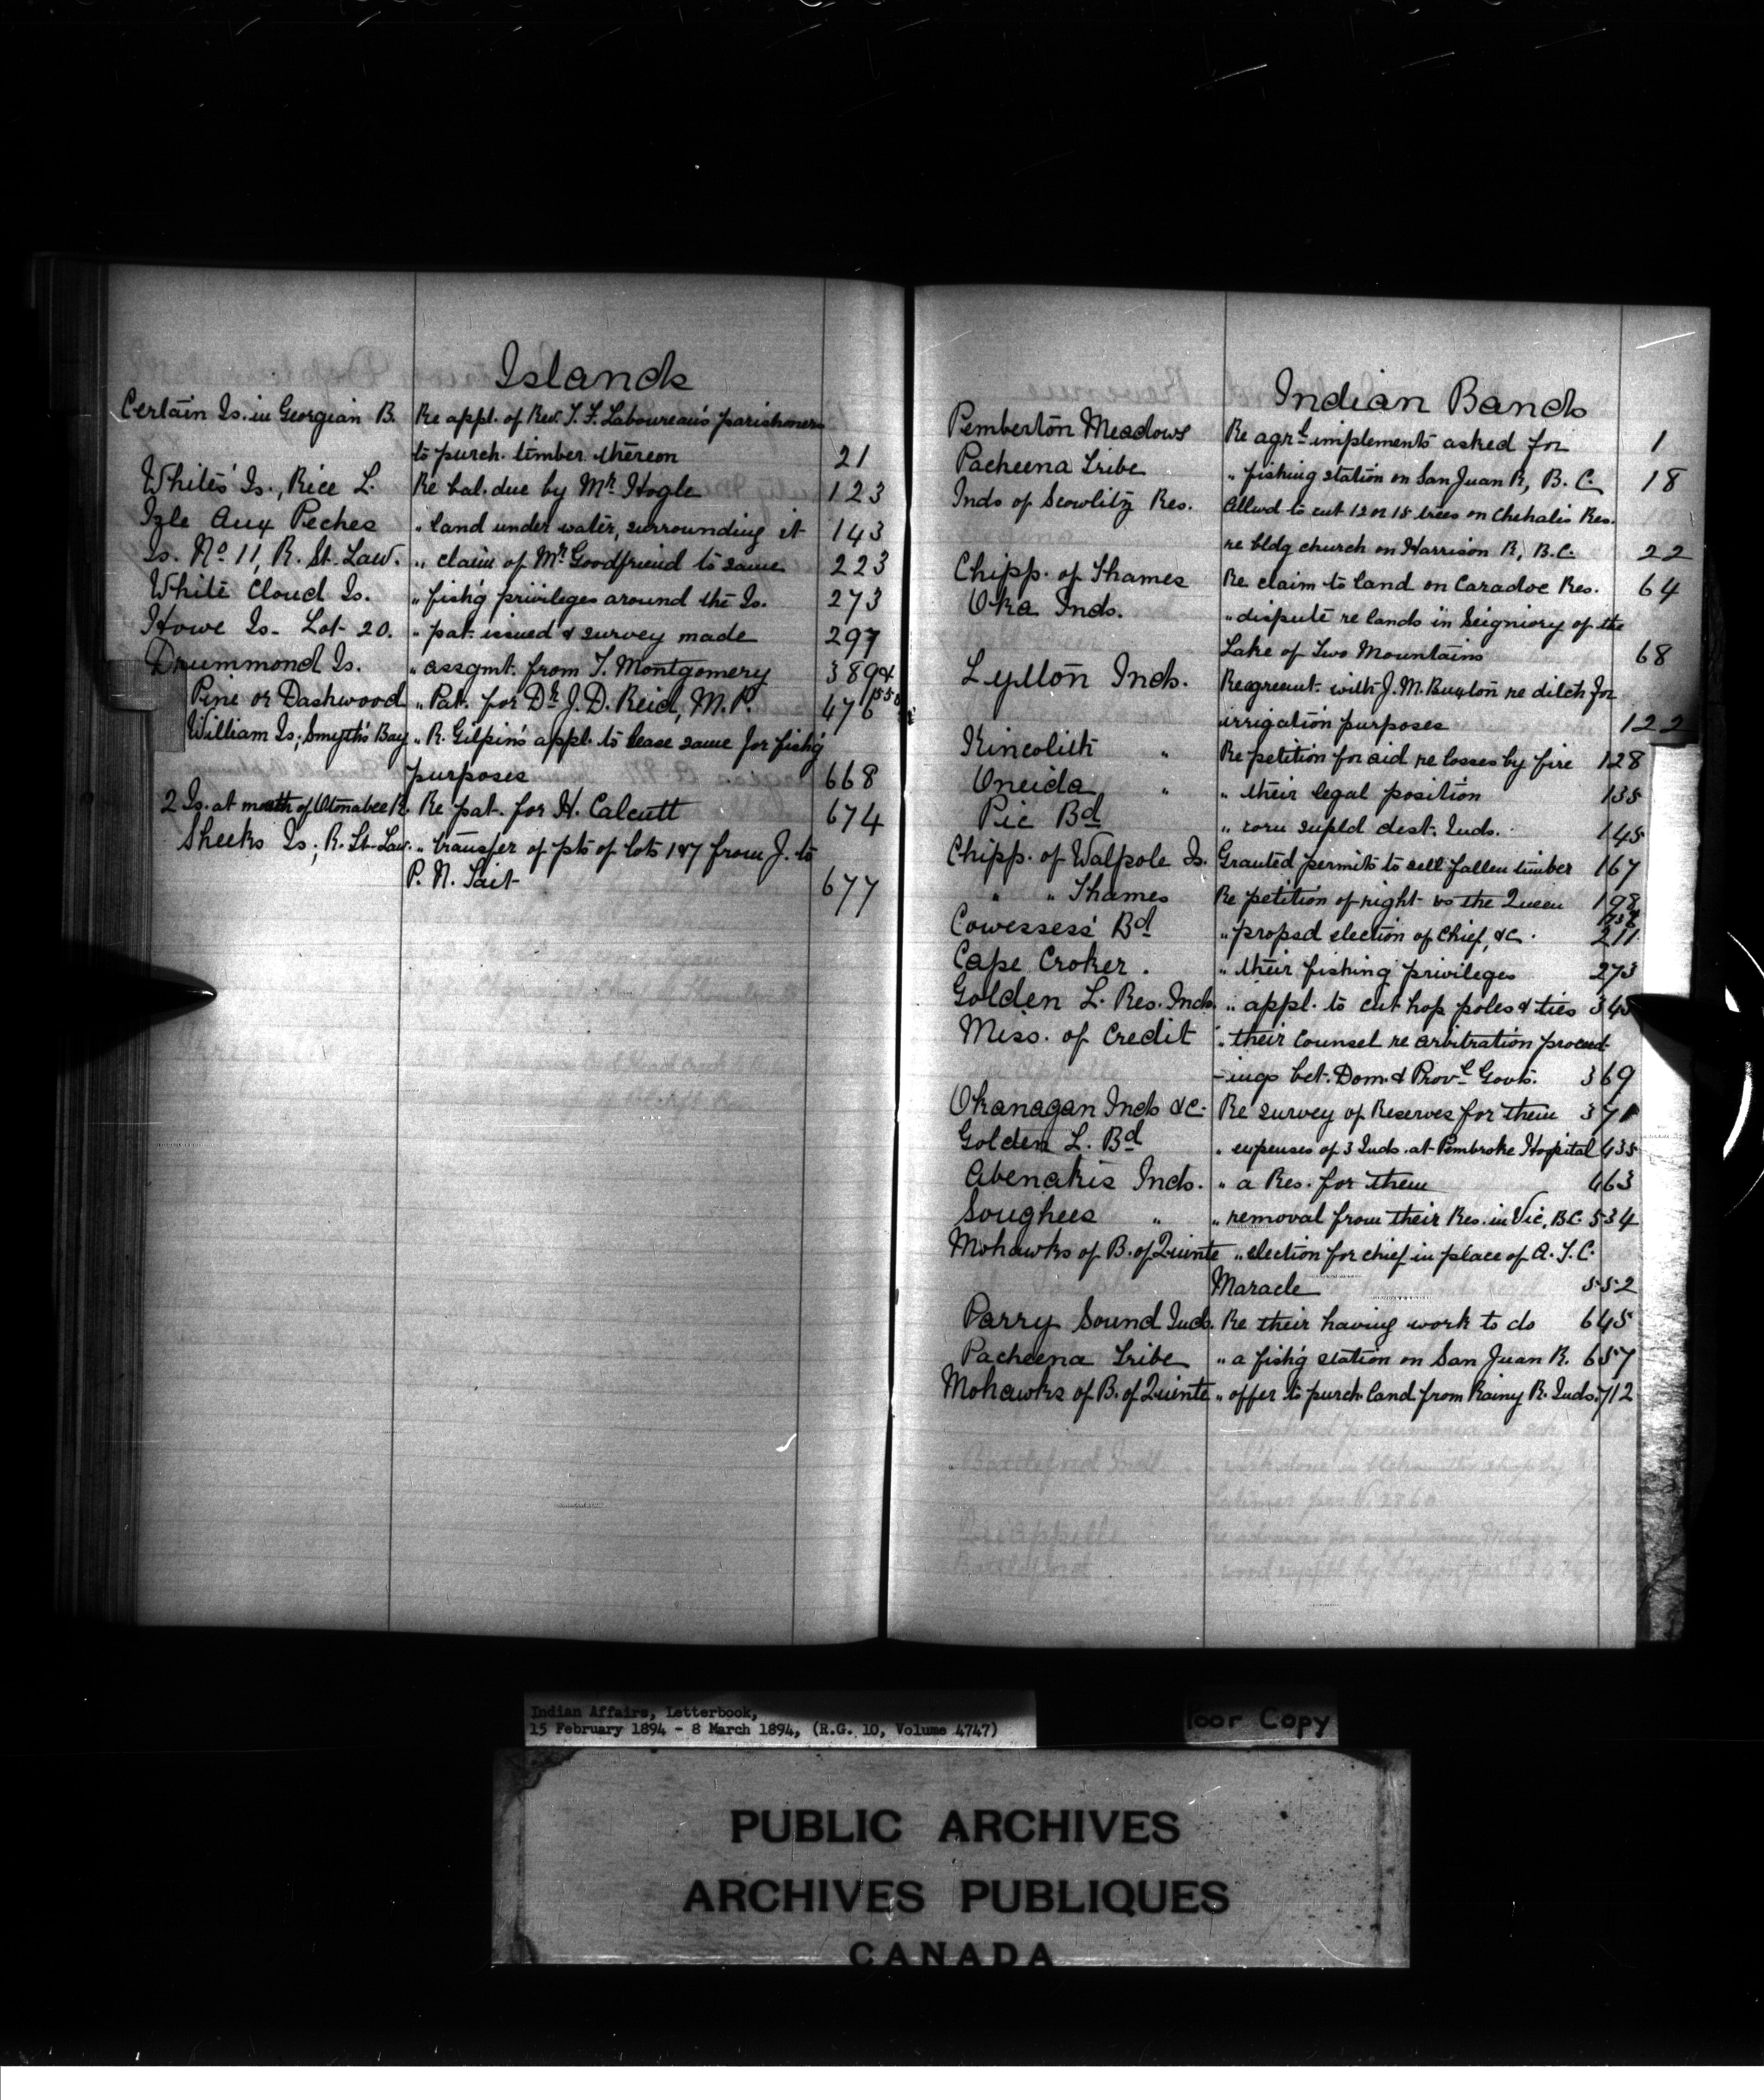 Islands
Certain Is. in Georgian B. Re appl. of Rev. T. F. Laboureau's parishoners
to purch. timber thereon 21
White's Is., Rice L. Re bal. due by Mr Hogle 123
Isle Aux Peches " land under water, surrounding it 143
Is. No 11, R. St. Law. " claim of Mr Goodfriend to same 223
White Cloud Is. " fish'g privileges around the Is. 273
Howe Is. Lot 20. " pat. issued & survey made 297
Drummond Is. " assgmt. from T. Montgomery 389
Pine or Dashwood " Pat. for Dr J. D. Reid, M.P. 476
William Is; Smyth's Bay " R. Gilpin's appl. to lease same for fish'g
purposes 668
2 Is. at mouth of Otonabee R. Re pat. for H. Calcutt 674
Sheeks Is; R. St. Law. " transfer of pts of lots 1&7 from J. to
P. N. Tait 677
Indian Bands
Pemberton Meadows Re agrl implements asked for 1
Pacheena Tribe " fishing station on San Juan R, B.C. 18
Inds of Scowlitz Res. Allwd to cut 12 or 15 trees on Chehalis Res.
re bldg church on Harrison R, B.C. 22
Chipp. of Thames Re claim to land on Caradoc Res. 64
Oka Inds. " dispute re lands in Seigniory of the
Lake of Two Mountains 68
Lytton Inds. Re agreemt. with J. M. Buxton re ditch for
irrigation purposes 122
Kincolith " Re petition for aid re losses by fire 128
Oneida " " their legal position 135
Pic Bd " supld dest. Inds. 145
Chipp. of Walpole Is. Granted permits to sell fallen timber 167
" " Thames Re petition of right vs the Queen 198
Cowessess' Bd " propsd election of Chief, &c. 211
Cape Croker. " their fishing privileges 273
Golden L. Res. Inds. " appl. to cut hop poles & ties 345
Miss. of Credit " their Counsel re arbitration proceed-
-ings bet. Dom. & Provl Govts. 369
Okanagan Inds &c. Re survey of Reserves for them 371
Golden L. Bd " expenses of 3 Inds. at Pembroke Hospital 435
Abenakis Inds. " a Res. for them 463
Soughees " " removal from their Res. in Vic, B.C. 534
Mohawks of B. of Quinte " election for chief in place of A. T. C.
Maracle 552
Parry Sound Inds. Re their having work to do 645
Pacheena Tribe " a fish'g station on San Juan R. 657
Mohawks of B. of Quinte " offer to purch. land from Rainy R. Inds. 712
Indian Affairs, Letterbook,
15 February 1894 - 8 March 1894, (R.G. 10, Volume 4747)
Poor Copy
PUBLIC ARCHIVES
ARCHIVES PUBLIQUES
CANADA